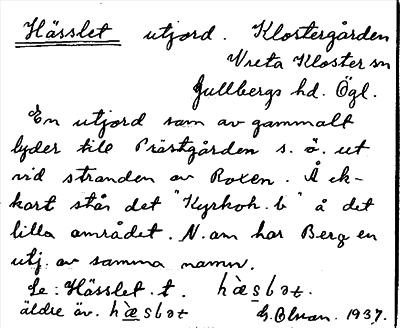 Hässlet utjord. Klostergården
Vreta Kloster sn
Gullbergs hd. Ögl.
En utjord som av gammalt
lyder till Prästgården s. ö. ut
vid stranden av Roxen. Å ek-
kart står det "Kyrkoh. b" å det
lilla området. N. om har Berg en
utj. av samma namn.
Se: Hässlet. t. hæ̀slət.
äldre äv. hæ̀slət G. 1937.